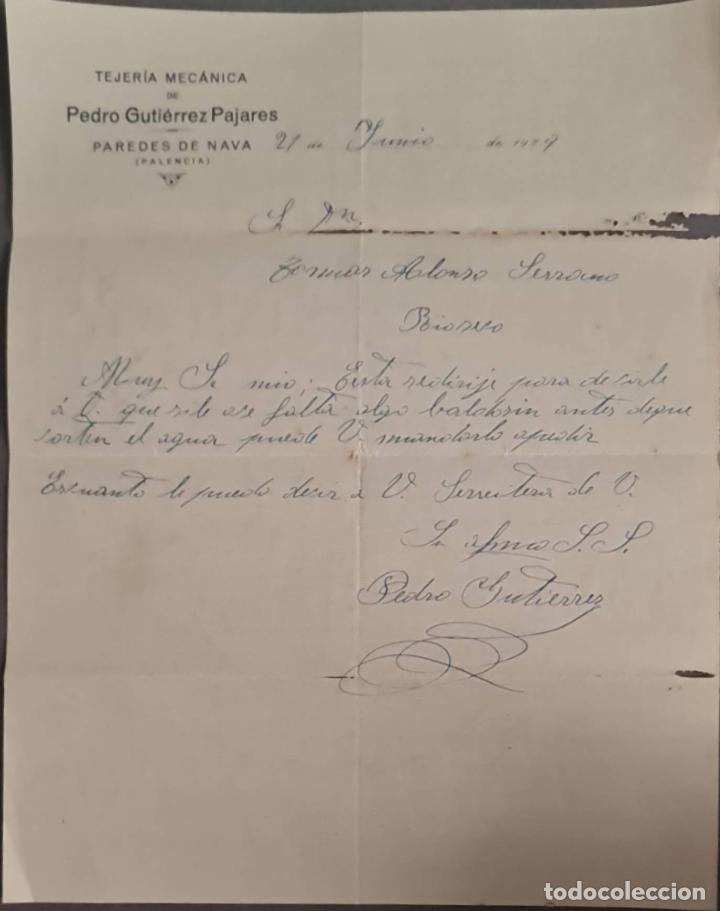 TEJERÍA MECÁNICA
DE
Pedro Gutiérrez Pajares
PAREDES DE NAVA
(PALENCIA)
21 de Junio de 1927
Sr Dn.
Tomas Alonso Serrano
Rioseco
Muy Sr mio; Esta sedirije para decirle
á V. que sile ase falta algo baldosin antes deque
corten el agua puede V. mandarlo apedir
Escuanto le puedo decir á V. Sereitera de V.
Su afmo S. S.
Pedro Gutierrez
todocoleccion